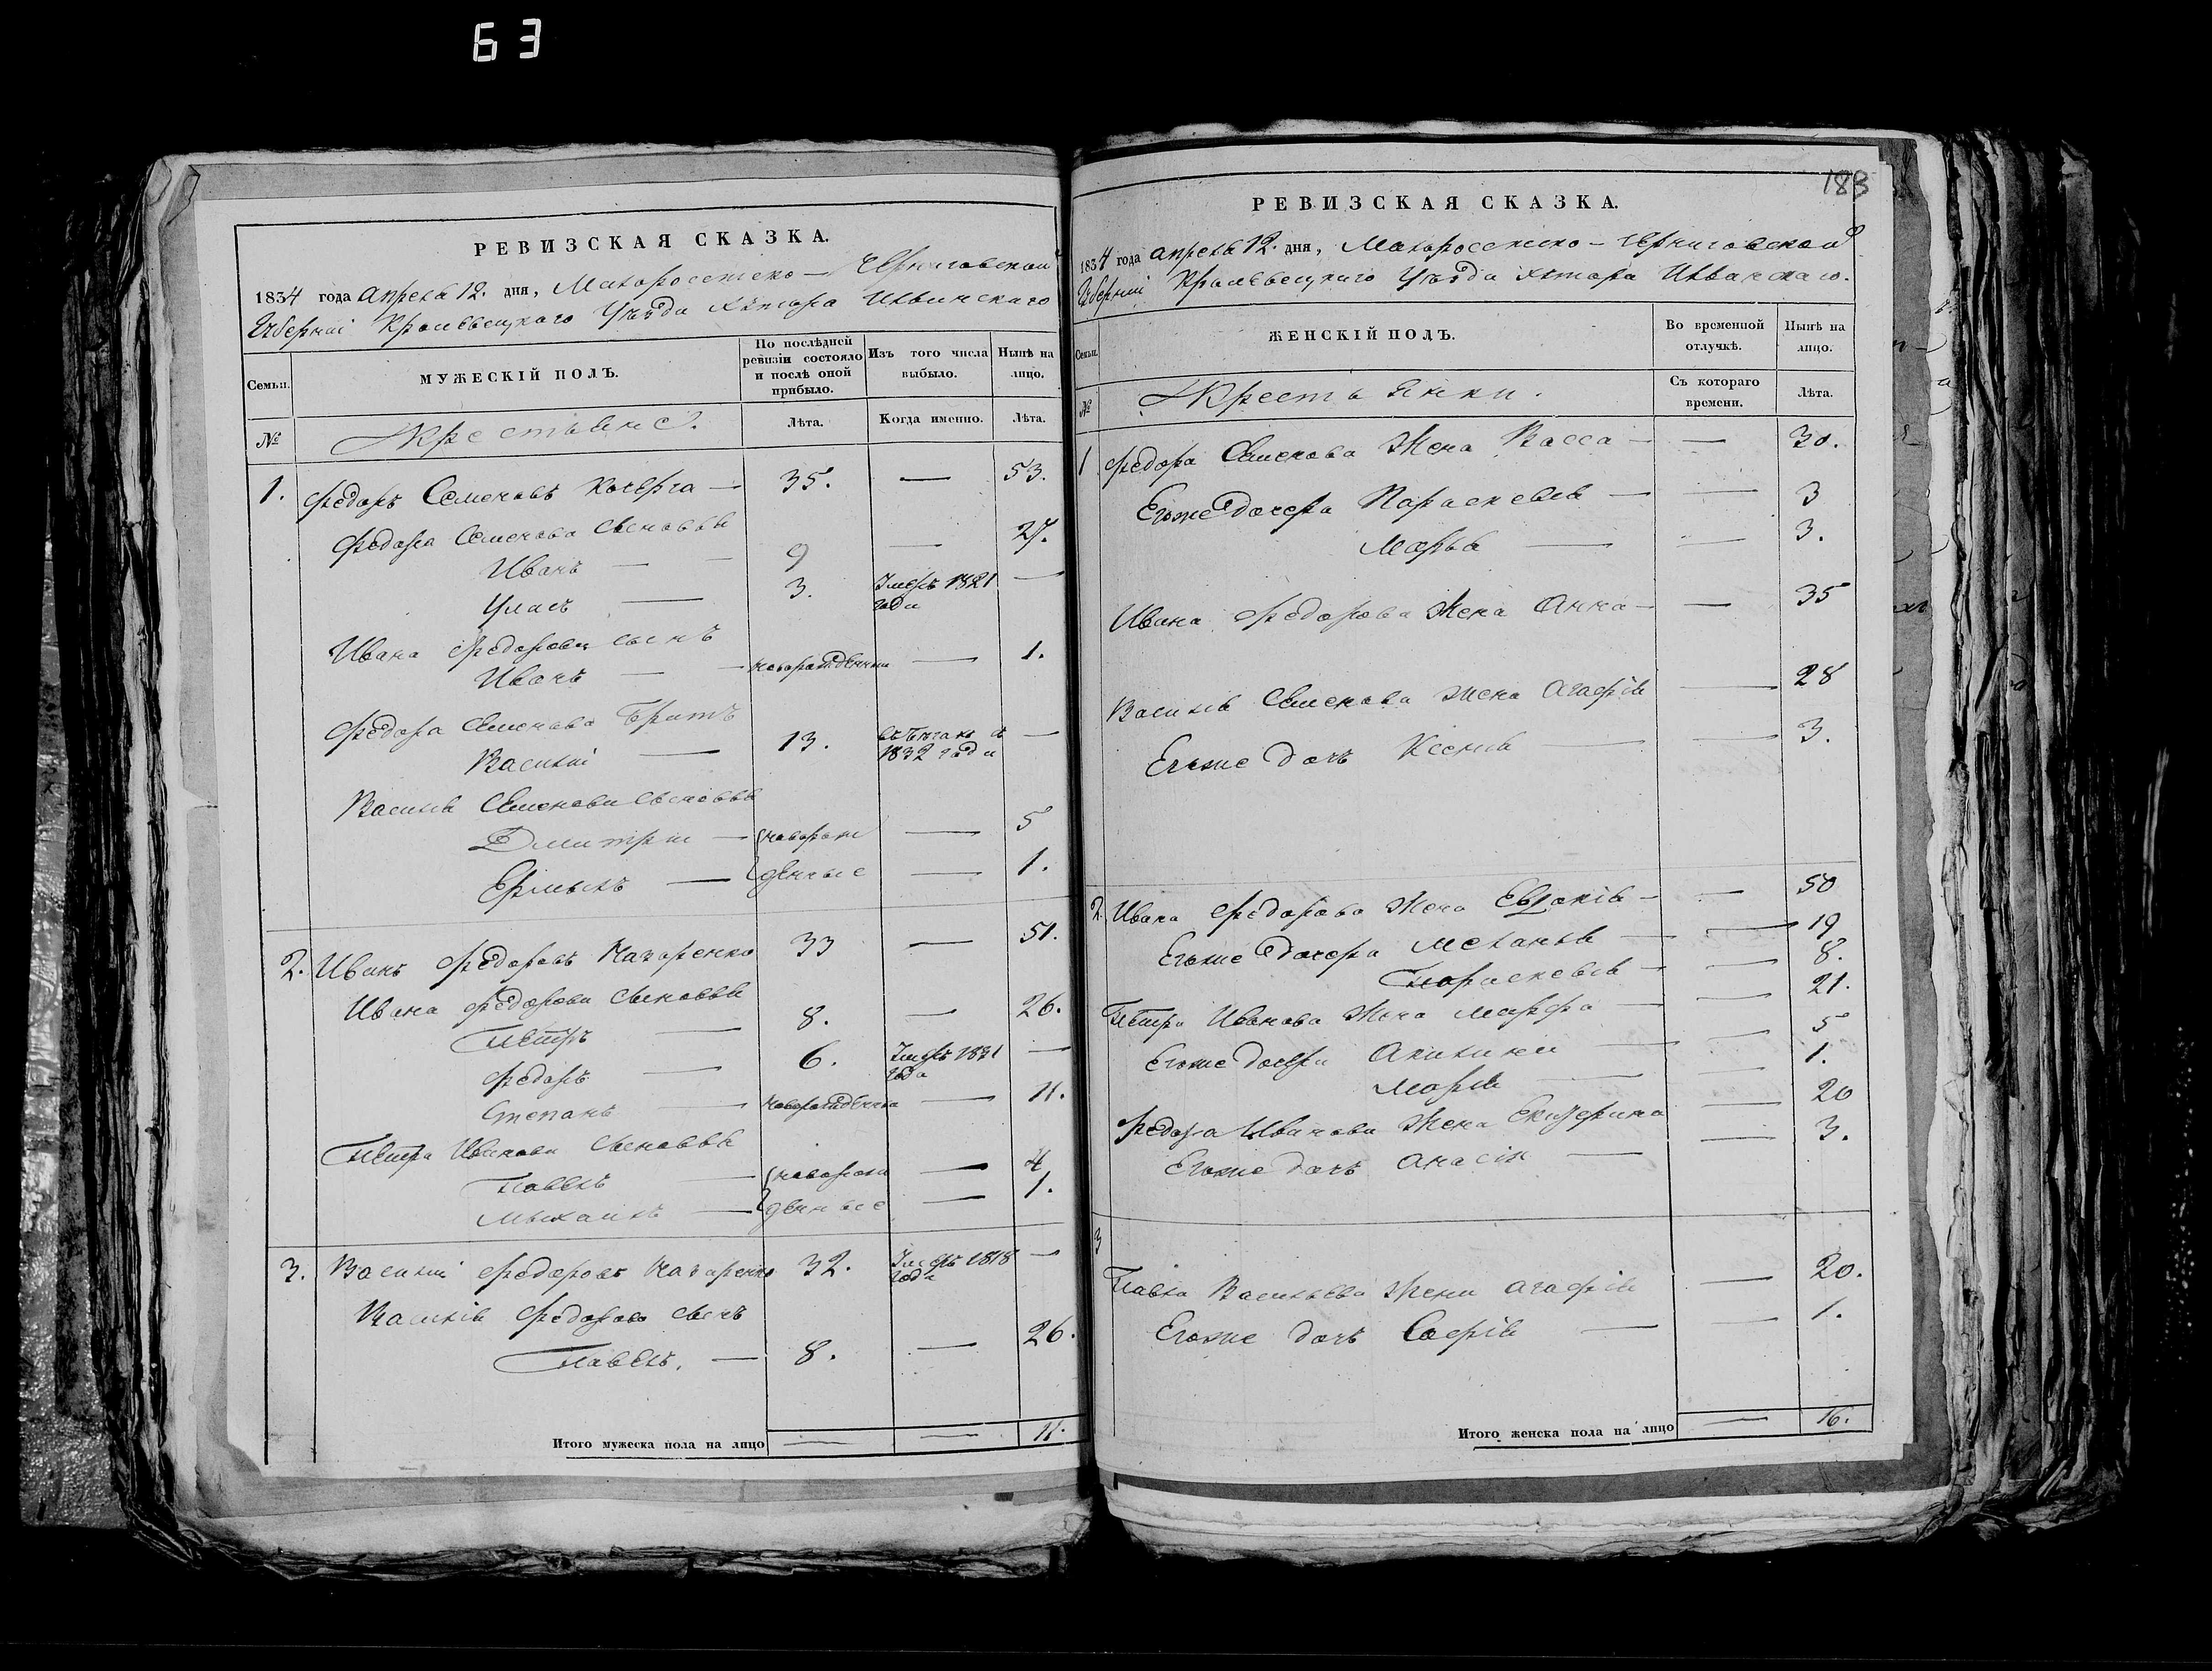 63
РЕВИЗСКАЯ СКАЗКА.
1834 года Апреля 12. дня, Малоросейско-Черниговской
Губерніи Кролевецкаго Уѣзда хутора Ильинскаго
Семьи.
МУЖЕСКІЙ ПОЛЪ.
По послѣдней ревизіи состояло и послѣ оной прибыло.
Изъ того числа выбыло.
Нынѣ на лицо.
№
Крестьяне.
Лѣта.
Когда именно.
Лѣта.
1. Федоръ Семеновъ Кочерга — 35. — 53.
Федора Семенова Сыновья
Иванъ — 9 — 27.
Уласъ — 3. Умеръ 1821 года —
Ивана Федорова сынъ
Иванъ — новорожденный — 1.
Федора Семенова Братъ
Василій — 13. въ бѣгахъ съ 1832 года —
Василія Семенова Сыновья
Дмитрій — новорож — 5
Ермылъ — денные — 1.
2. Иванъ Федоровъ Назаренко 33 — 51.
Ивана Федорова Сыновья
Петръ — 8. — 26.
Федоръ — 6. Умеръ 1831 года —
Степанъ — новорожденны — 11.
Петра Иванова Сыновья
Павелъ — новорож — 4
Мыхаилъ — денные — 1.
3. Василій Федоровъ Назаренко 32. Умеръ 1818 года —
Василія Федорова сынъ
Павелъ. — 8. — 26.
Итого мужеска пола на лицо — — 11.
188
РЕВИЗСКАЯ СКАЗКА.
1834 года Апреля 12. дня, Малоросейско-Черниговской
Губерніи Кролевецкаго Уѣзда хутора
Семьи.
ЖЕНСКІЙ ПОЛЪ.
Во временной отлучкѣ.
Нынѣ на лицо.
№
Крестьянки.
Съ котораго времени.
Лѣта.
1 Федора Семенова Жена Васса — — 30.
Егоже Дочера Параскевія — — 3
Марья — — 3.
Ивана Федорова Жена Анна — — 35
Василія Семенова жена Агафія — 28
Егоже дочь Ксенія — — 3.
2. Ивана Федорова Жена Евдокія — — 50
Егоже Дочера Меланья — — 19
Параскевія — — 8.
Петра Иванова Жена Марфа — — 21.
Егоже Дочери Акилина — — 5
Марія — — 1.
Федора Иванова Жена Екатерина — 20
Егоже дочь Анасія — — 3.
3
Павла Васильева Жена Агафія — 20.
Егоже дочь Софія — — 1.
Итого женска пола на лицо — 16.